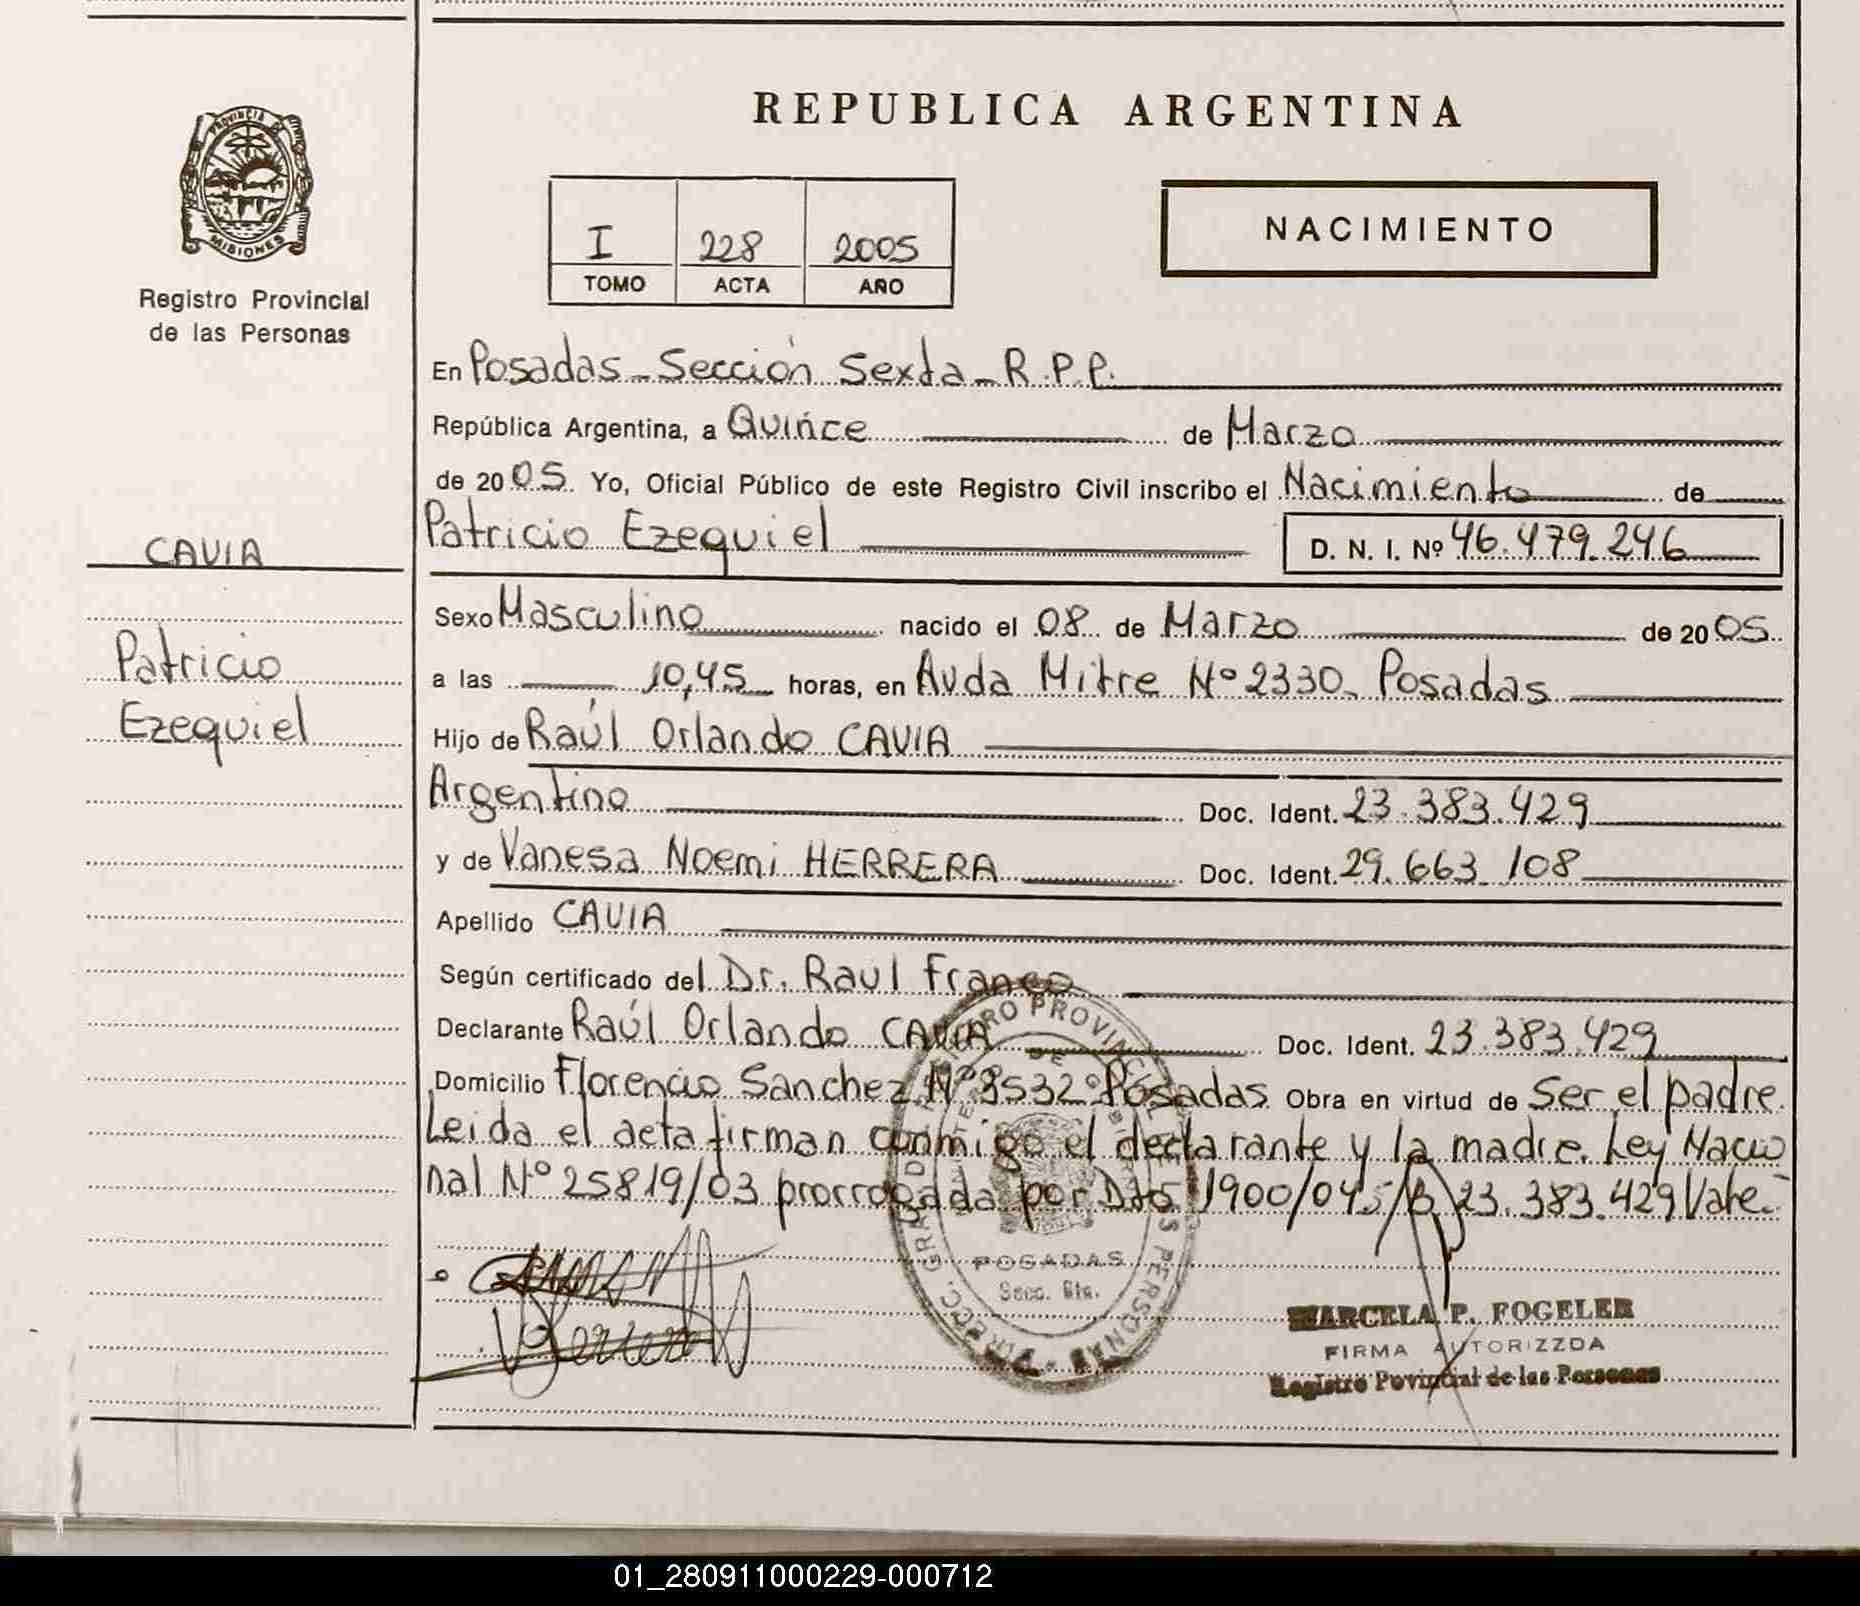 PROVINCIA DE
MISIONES
Registro Provincial
de las Personas
CAVIA
Patricio
Ezequiel
REPUBLICA ARGENTINA
I 228 2005
TOMO ACTA AÑO
NACIMIENTO
En Posadas - Sección Sexta - R.P.P.
República Argentina, a Quince de Marzo
de 2005 Yo, Oficial Público de este Registro Civil inscribo el Nacimiento de
Patricio Ezequiel D. N. I. Nº 46.479.246
Sexo Masculino nacido el 08 de Marzo de 2005
a las 10,45 horas, en Avda Mitre Nº 2330 - Posadas
Hijo de Raúl Orlando CAVIA
Argentino Doc. Ident. 23.383.429
y de Vanesa Noemi HERRERA Doc. Ident. 29.663.108
Apellido CAVIA
Según certificado del Dr. Raul Franco
Declarante Raúl Orlando CAVIA Doc. Ident. 23.383.429
Domicilio Florencio Sanchez Nº 8532 Posadas Obra en virtud de Ser el padre.
Leida el acta firman conmigo el declarante y la madre. Ley Nacio
nal Nº 25819/03 prorrogada por Dto 1900/04 23.383.429 Vale.
POSADAS
Secc. 6ta.
MARCELA P. FOGELER
FIRMA AUTORIZZDA
Registro Povincial de las Personas
01_280911000229-000712